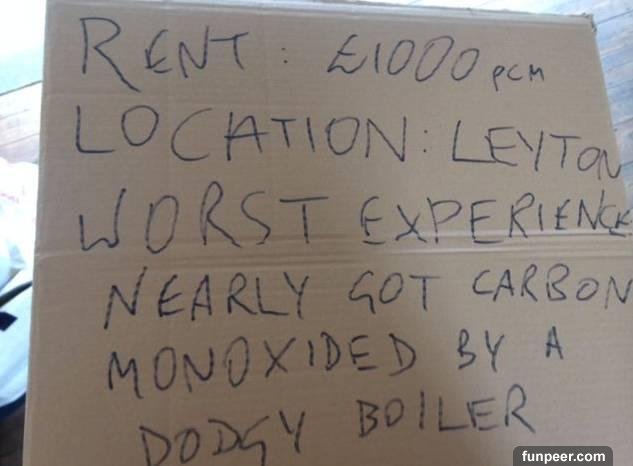 RENT: £1000 pcm
LOCATION: LEYTON
WORST EXPERIENCE
NEARLY GOT CARBON
MONOXIDED BY A
DODGY BOILER
funpeer.com